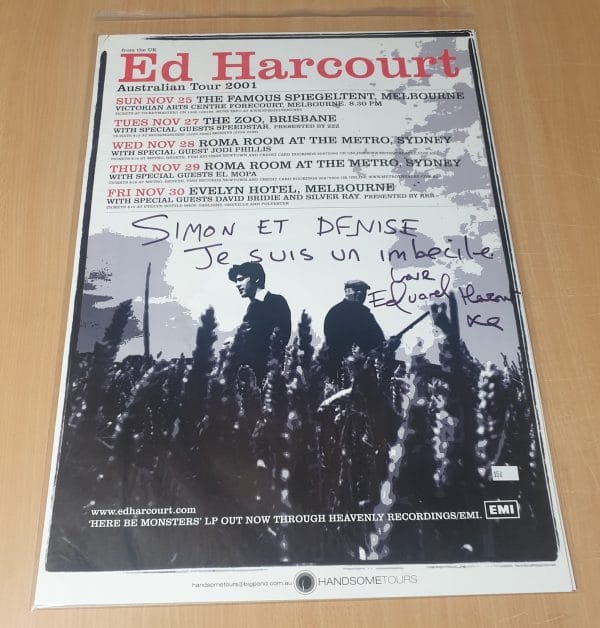 from the UK
Ed Harcourt
Australian Tour 2001
SUN NOV 25 THE FAMOUS SPIEGELTENT, MELBOURNE
VICTORIAN ARTS CENTRE FORECOURT, MELBOURNE. 8.30 PM
TUES NOV 27 THE ZOO, BRISBANE
WITH SPECIAL GUESTS SPEEDSTAR. PRESENTED BY ZZZ
WED NOV 28 ROMA ROOM AT THE METRO, SYDNEY
WITH SPECIAL GUEST JODI PHILLIS
THUR NOV 29 ROMA ROOM AT THE METRO, SYDNEY
WITH SPECIAL GUESTS EL MOPA
FRI NOV 30 EVELYN HOTEL, MELBOURNE
WITH SPECIAL GUESTS DAVID BRIDIE AND SILVER RAY. PRESENTED BY RRR
SIMON ET DENISE
Je suis un imbecile
love
Edward Harcourt
www.edharcourt.com
'HERE BE MONSTERS' LP OUT NOW THROUGH HEAVENLY RECORDINGS/EMI. EMI
handsometours@bigpond.com.au HANDSOMETOURS